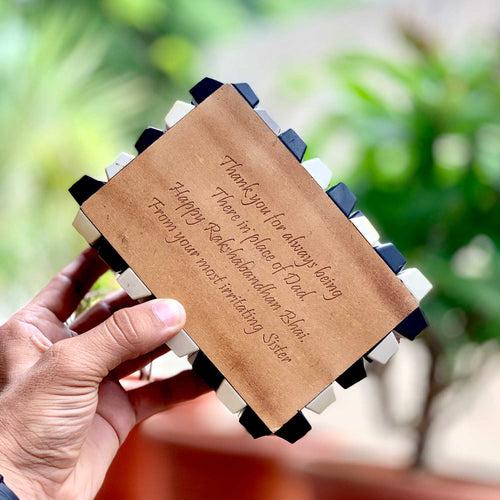 Thank you for always being
There in place of Dad.
Happy Rakshabandhan Bhai.
From your most irritating Sister